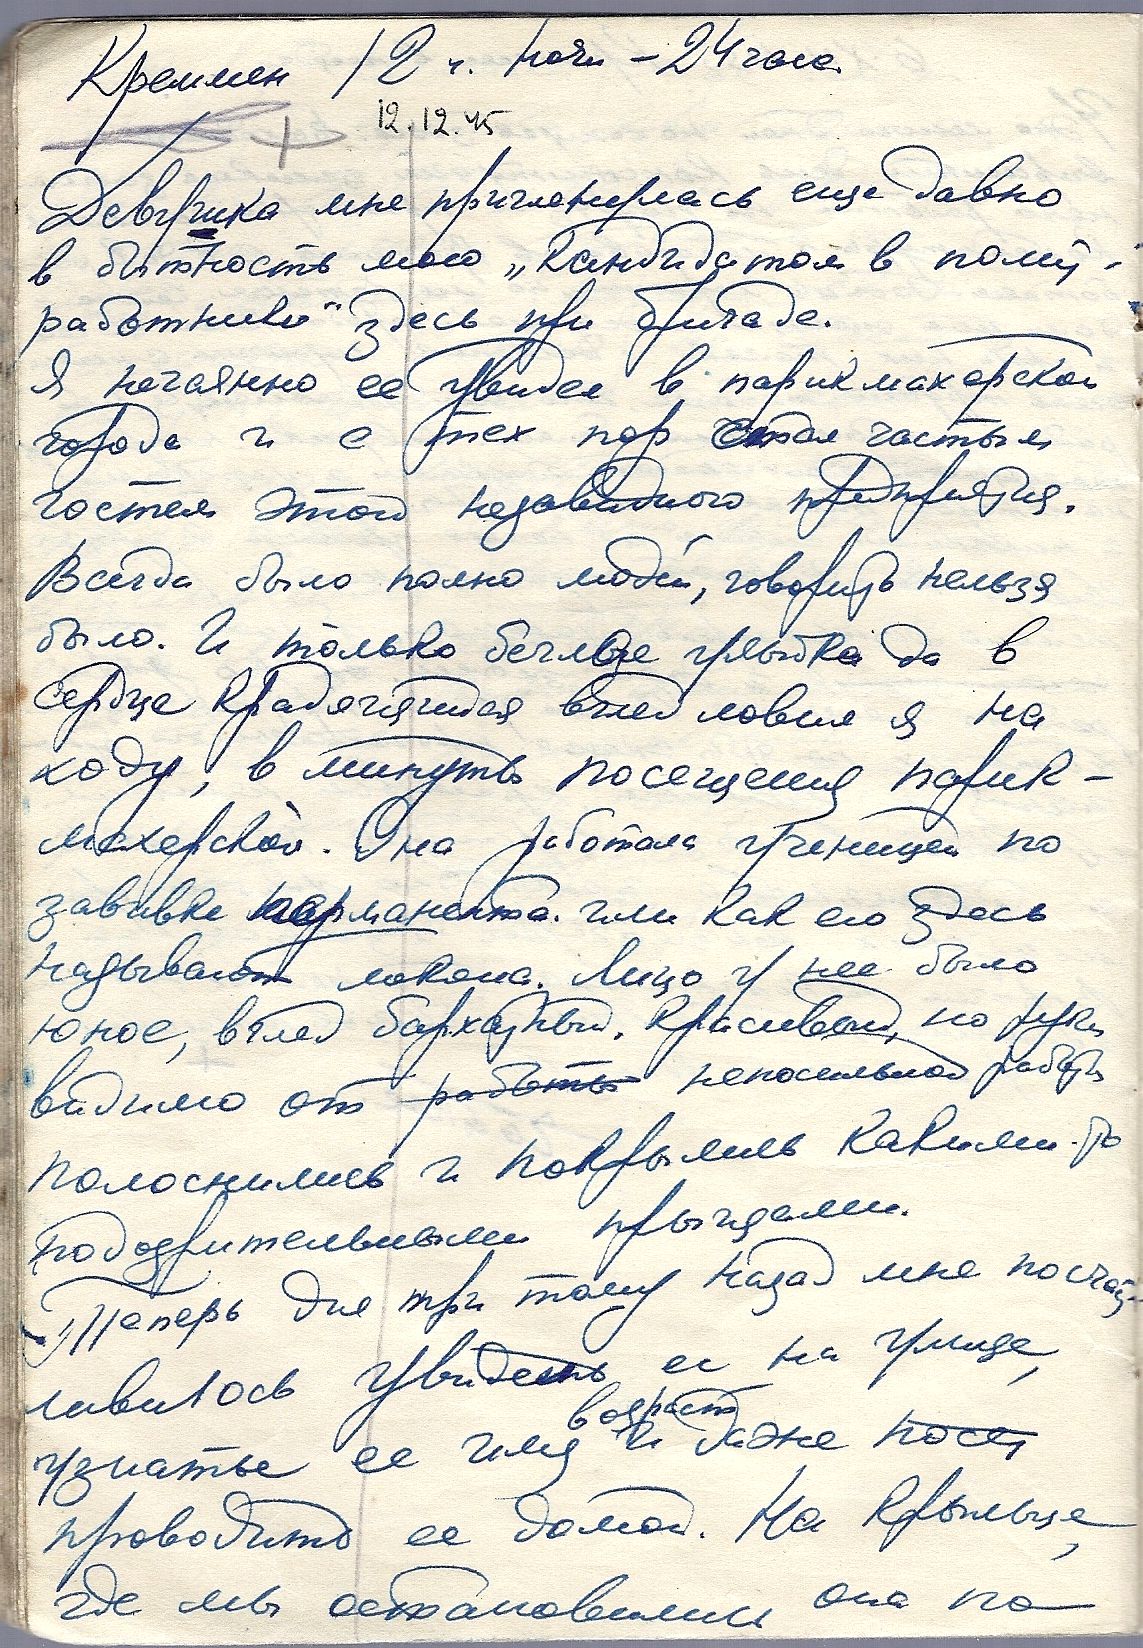 Креммен 12 ч. ночи – 24 часа.
12.12.45
Девушка мне приглянулась еще давно
в бытность мою „кандидатом в полит-
работники" здесь при бригаде.
Я нечаянно ее увидел в парикмахерской
города и с тех пор стал частым
гостем этой незавидного предприятия.
Всегда было полно людей, говорить нельзя
было. И только беглые улыбка да в
сердце крадущийся взгляд ловил я на
ходу, в минуты посещения парик-
махерской. Она работала ученицей по
завивке перманента. или как его здесь
называют локона. Лицо у нее было
юное, взгляд бархатный, красивый, но руки
видимо от работы непосильной работы
полоснились и покрылись какими-то
подозрительными прыщами.
Теперь дня три тому назад мне посчаст-
ливилось увидеть ее на улице,
возраст
узнать ее имя и даже
проводить ее домой. На крыльце,
где мы остановились она по